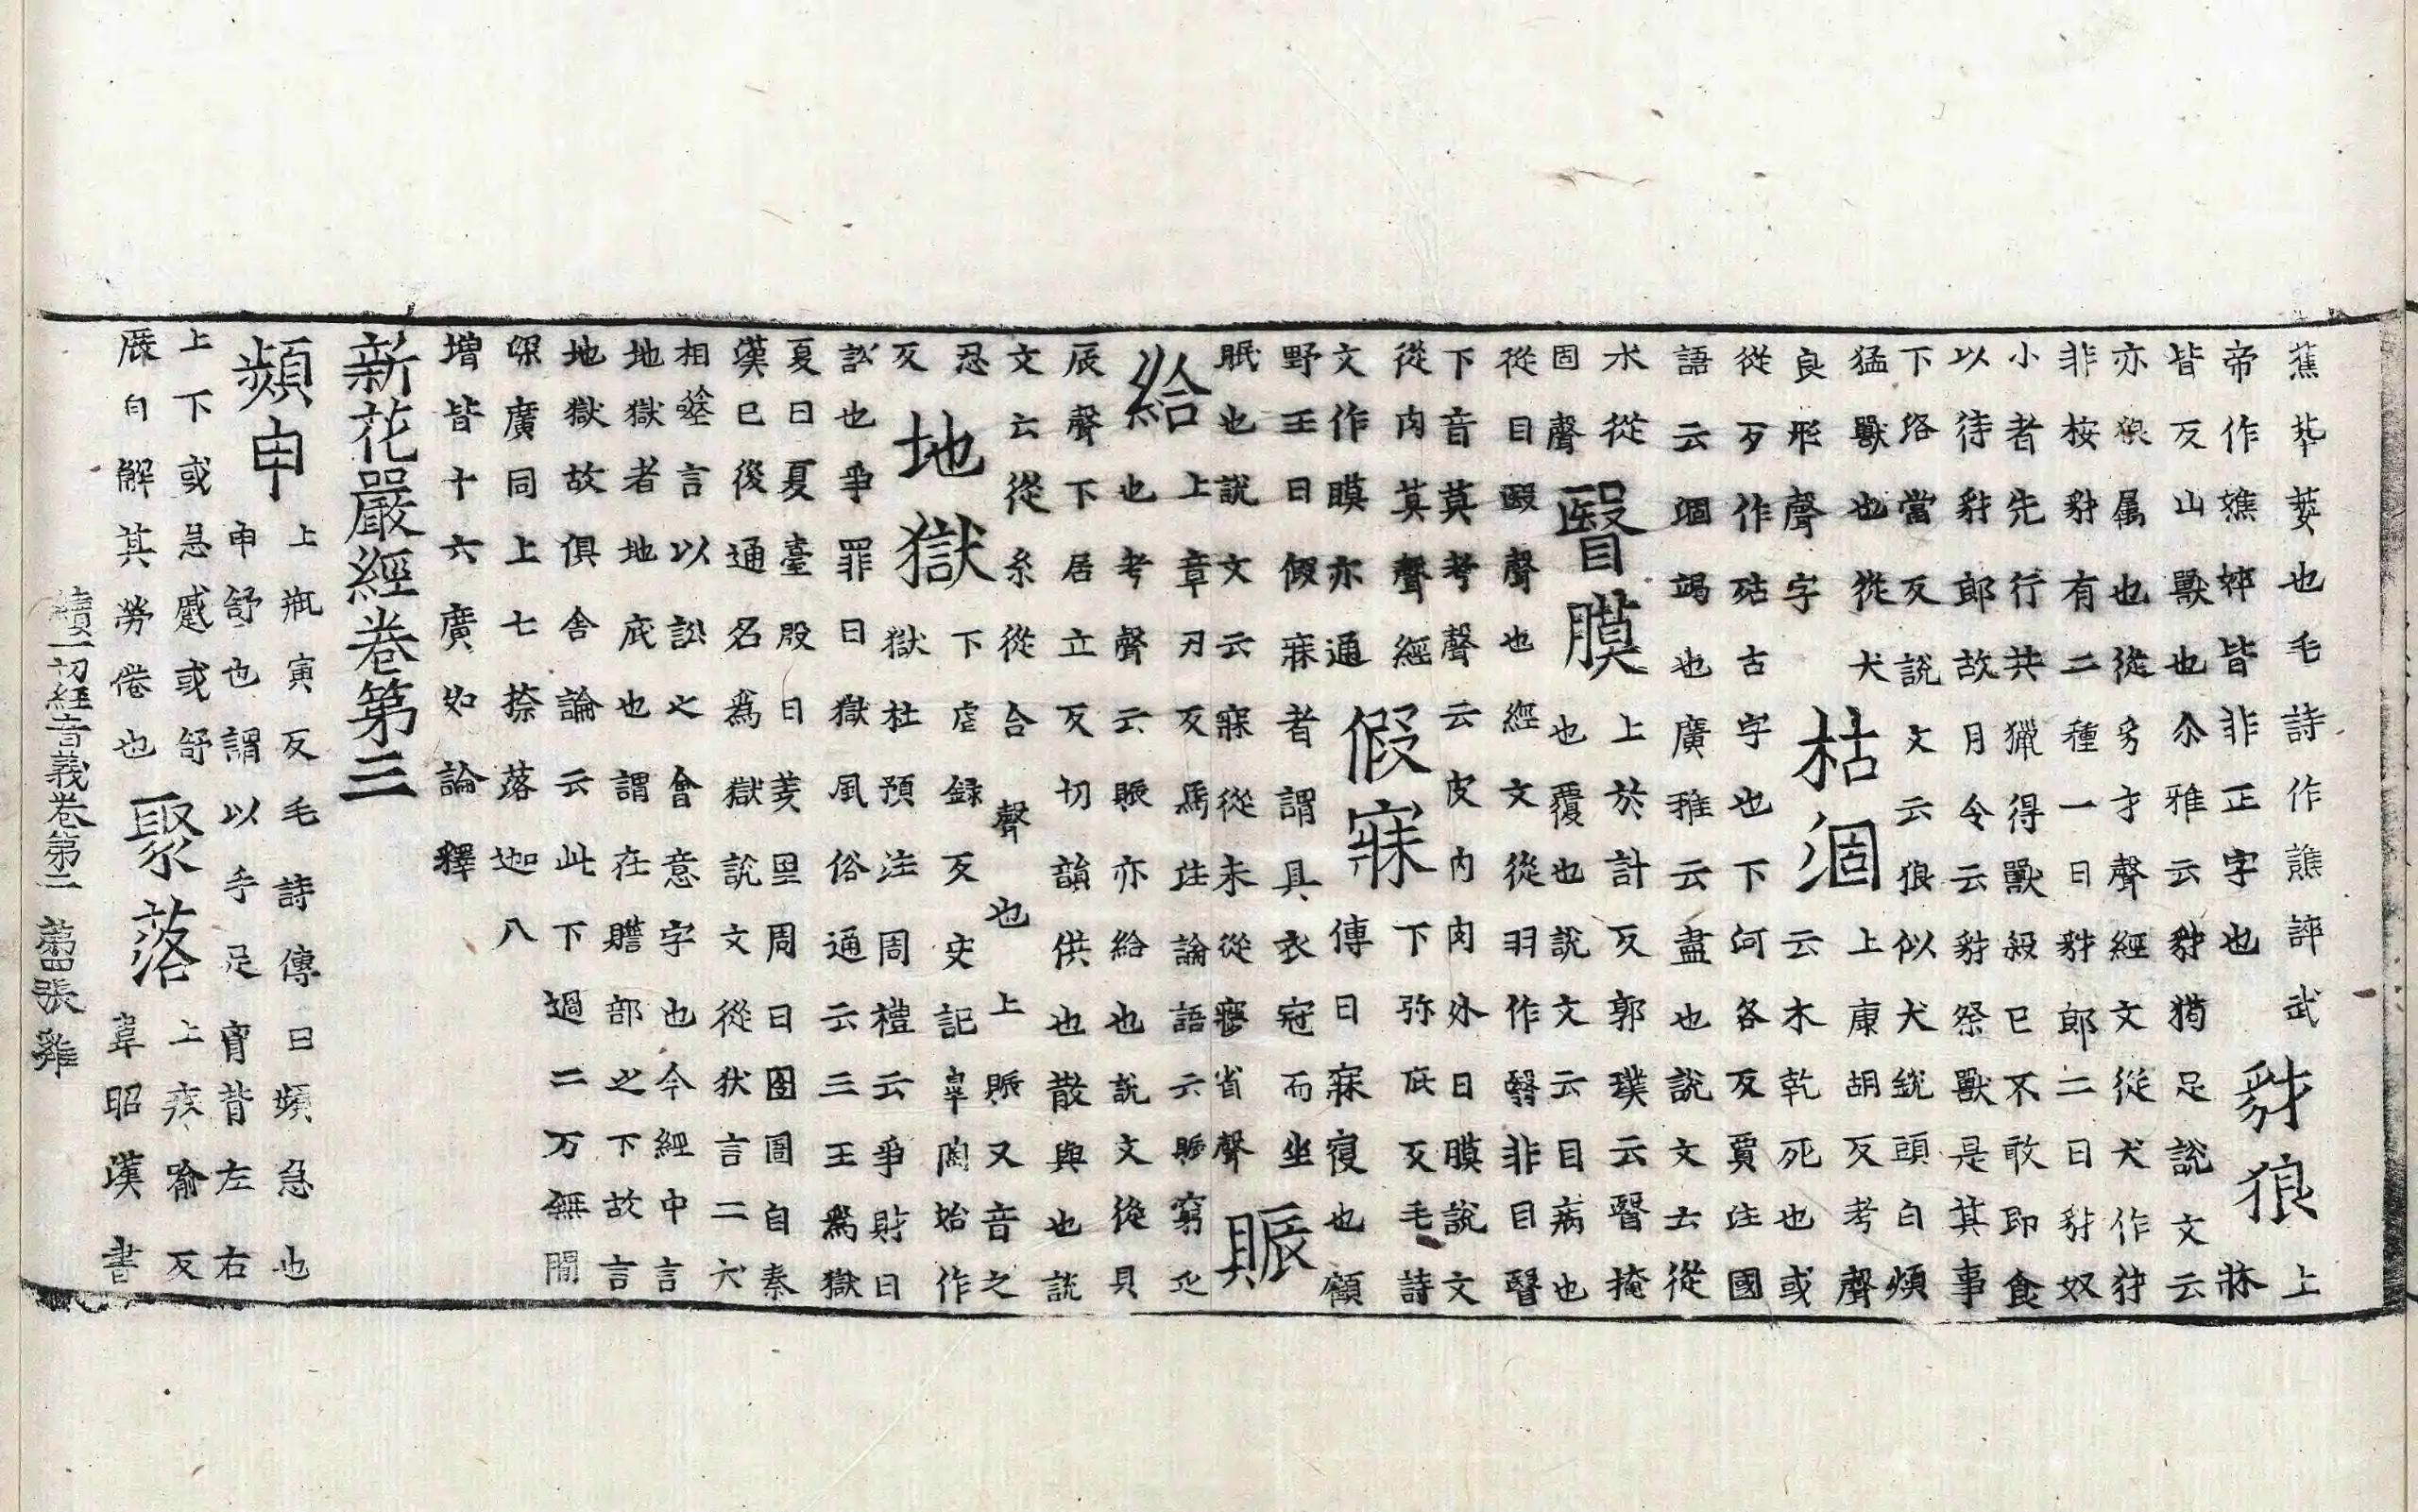 蕉萃葵也毛詩作譙誶武
帝作憔悴皆非正字也
豺狼
上牀
皆反山獸也尒雅云豺猗足說文云
亦狼属也從豸才聲經文從犬作犲
非桉豺有二種一曰豺郎二曰豺奴
小者先行共獵得獸殺已不敢即食
以待豺郎故月令云豺祭獸是其事
下洛當反說文云狼似犬銳頭白煩
猛獸也從犬
良形聲字
枯涸
上康胡反考聲
云木乾死也或
從歹作㱠古字也下河各反賈注國
語云涸竭也廣雅云盡也說文云從
水從
固聲
瞖膜
上於計反郭璞云瞖掩
也覆也說文云目病也
從目殹聲也經文從羽作翳非目瞖
下音莫考聲云皮内肉外曰膜說文
從肉莫聲經
文作瞙亦通
假寐
下弥庇反毛詩
傳曰寐寑也顧
野王曰假寐者謂具衣冠而坐
眠也說文云寐從未從㝱省聲
賑
給
上章刃反馬注論語云賑窮乏
也考聲云賑亦給也說文從貝
辰聲下居立反切韻供也散與也說
文云從糸從合聲也上賑又音之
忍
反
地獄
下虐録反史記皐陶始作
獄杜預注周禮云爭財曰
訟也爭罪曰獄風俗通云三王爲獄
夏曰夏臺殷曰羑里周曰囹圄自秦
漢已後通名爲獄說文從㹜言二犬
相㘸言以訟之會意字也今經中言
地獄者地底也謂在贍部之下故言
地獄故俱舎論云此下過二万無間
深廣同上七捺落迦八
増皆十六廣如論釋
新花嚴經卷第三
頻申
上瓶寅反毛詩傳曰頻急也
申舒也謂以手足膏背左右
上下或急蹙或舒
展自解其勞倦也
聚落
上疾喻反
韋昭漢書
續一切經音義卷第二 第四張 雞